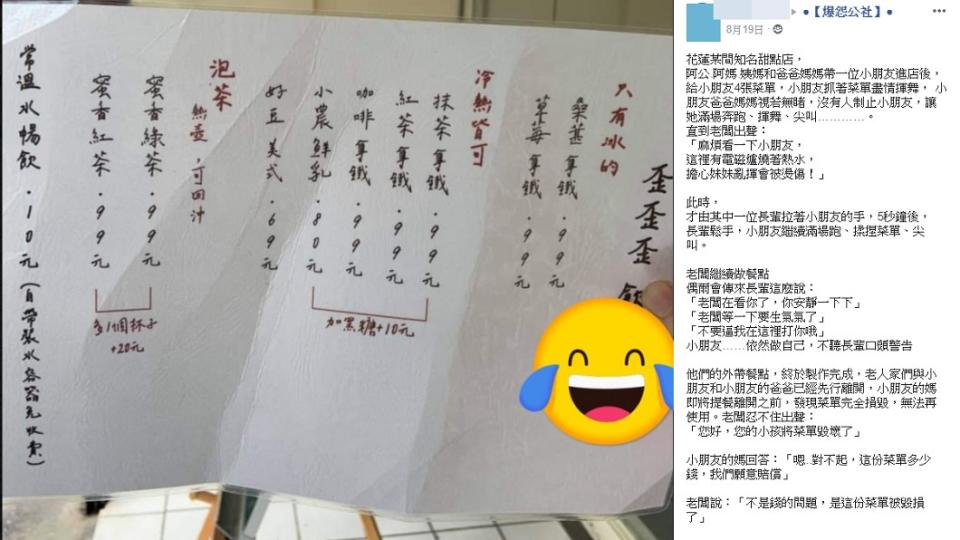 歪歪歪 飲
只有冰的
桑葚拿鐵.99元
草莓拿鐵.99元
冷熱皆可
抹茶拿鐵.99元
紅茶拿鐵.99元
咖啡拿鐵.99元
小農鮮乳.80元
加黑糖+10元
好豆美式.69元
泡茶
熱壺,可回沖
蜜香綠茶.99元
蜜香紅茶.99元
多1個杯子
+20元
常溫水暢飲.10元(自帶裝水容器
●【爆怨公社】●
8月19日
花蓮某間知名甜點店，
阿公.阿媽.姨媽和爸爸媽媽帶一位小朋友進店後，
給小朋友4張菜單，小朋友抓著菜單盡情揮舞， 小
朋友爸爸媽媽視若無睹，沒有人制止小朋友，讓
她滿場奔跑、揮舞、尖叫…………。
直到老闆出聲：
「麻煩看一下小朋友，
這裡有電磁爐燒著熱水，
擔心妹妹亂揮會被燙傷！」
此時，
才由其中一位長輩拉著小朋友的手，5秒鐘後，
長輩鬆手，小朋友繼續滿場跑、揉捏菜單、尖
叫。
老闆繼續做餐點
偶爾會傳來長輩這麼說：
「老闆在看你了，你安靜一下下」
「老闆等一下要生氣氣了」
「不要逼我在這裡打你哦」
小朋友……依然做自己，不聽長輩口頭警告
他們的外帶餐點，終於製作完成，老人家們與小
朋友和小朋友的爸爸已經先行離開，小朋友的媽
即將提餐離開之前，發現菜單完全損毀，無法再
使用。老闆忍不住出聲：
「您好，您的小孩將菜單毀壞了」
小朋友的媽回答：「嗯..對不起，這份菜單多少
錢，我們願意賠償」
老闆說：「不是錢的問題，是這份菜單被毀損
了」